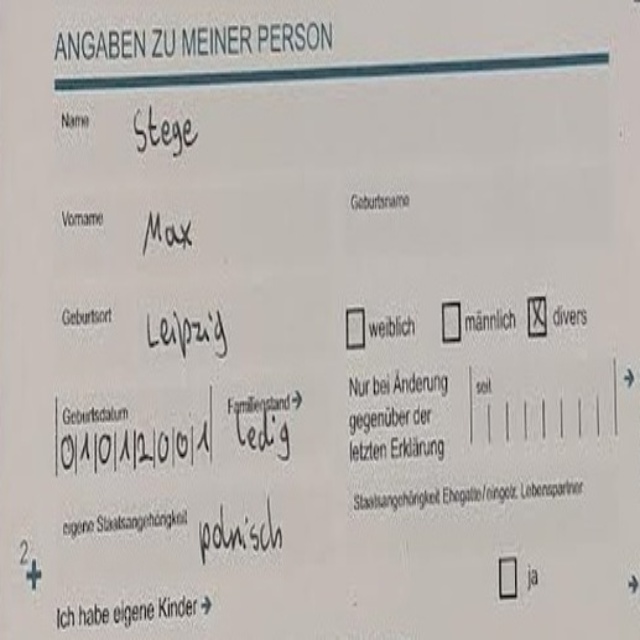 ANGABEN ZU MEINER PERSON
Name Stege
Vorname Max
Geburtsname
Geburtsort Leipzig
weiblich männlich X divers
Geburtsdatum 01012001
Familienstand → ledig
Nur bei Änderung gegenüber der letzten Erklärung
seit
eigene Staatsangehörigkeit polnisch
Staatsangehörigkeit Ehegatte/eingetr. Lebenspartner
2
Ich habe eigene Kinder →
ja